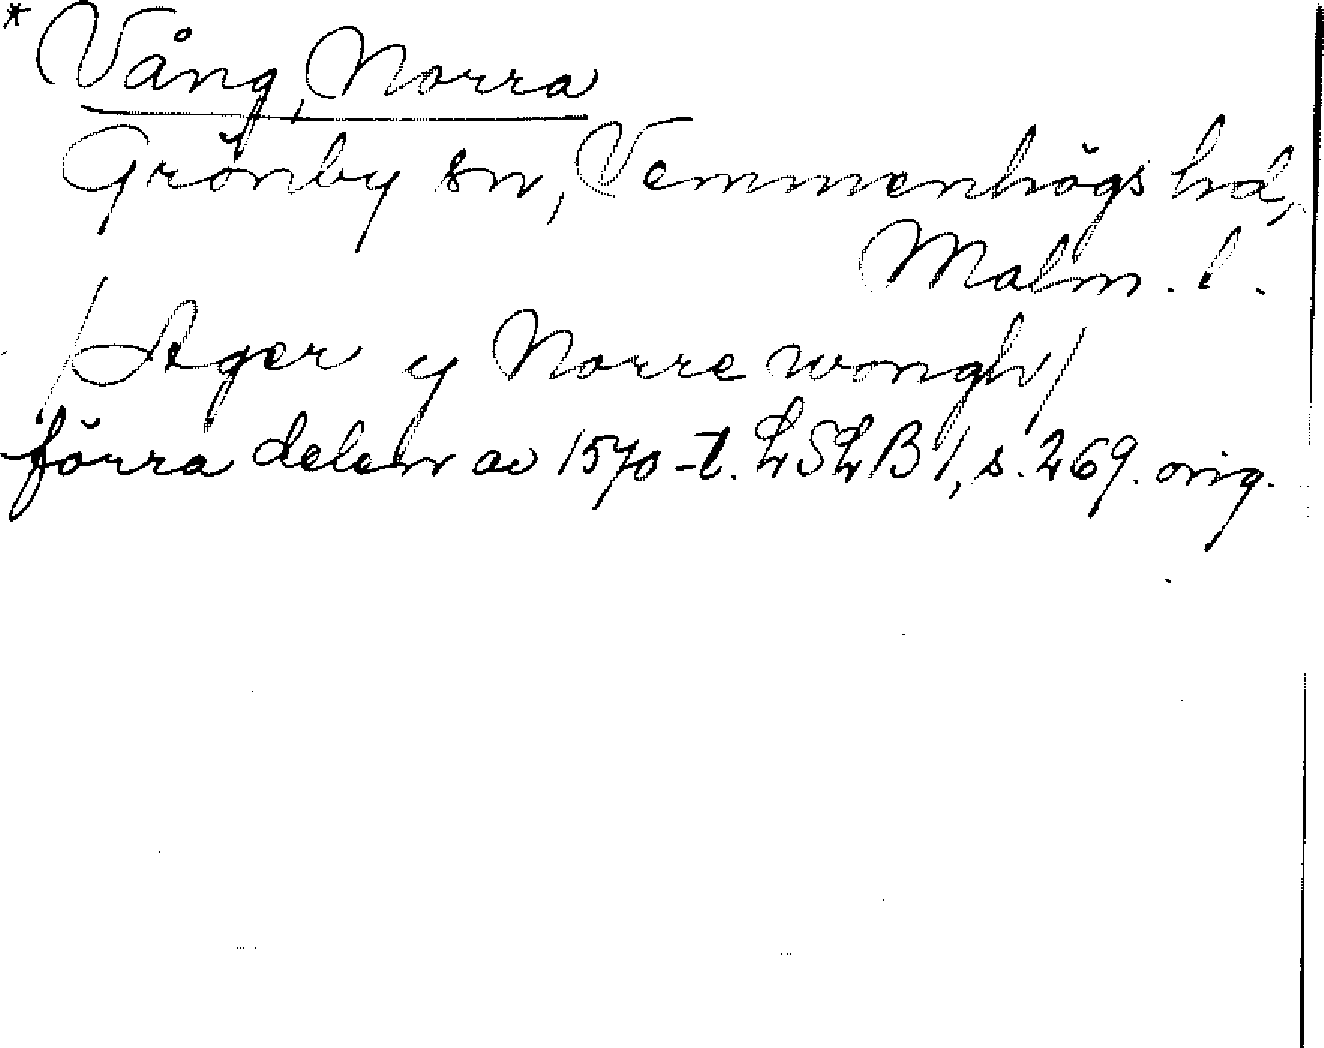 * Vång, Norra
Grönby sn, Vemmenhögs hd,
Malm. l.
/Ager y Norre wongh/
förra delen av 1570-t. LSLB 1, s. 269. orig.